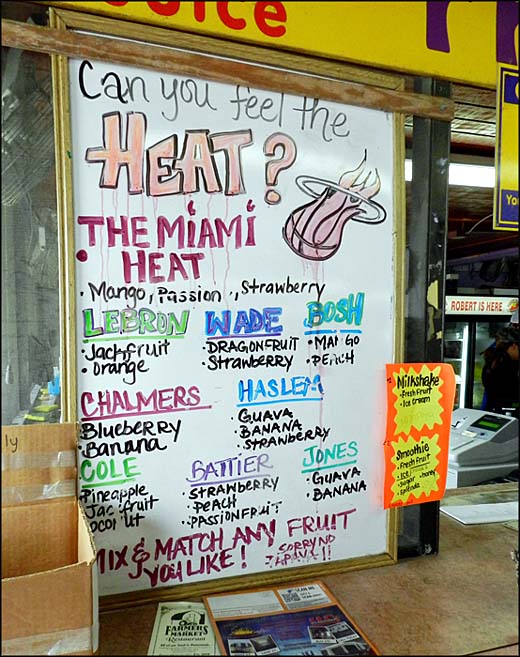 uice
Can you feel the
HEAT?
THE MIAMI
HEAT
Mango, Passion, Strawberry
LEBRON
Jackfruit
Orange
WADE
DRAGONFRUIT
Strawberry
BOSH
MA GO
PEACH
CHALMERS
Blueberry
Banana
HASLEM
GUAVA
BANANA
STRAWBERRY
COLE
Pineapple
Jac fruit
OCO UT
BATTIER
STRAWBERRY
PEACH
PASSIONFRUIT
JONES
GUAVA
BANANA
MIX & MATCH ANY FRUIT
YOU LIKE!
SORRY NO
PAPAYA!!
Milkshake
Fresh fruit
Ice cream
Smoothie
Fresh fruit
Ice
sugar honey
splenda
ROBERT IS HERE
Yo
ly
FARMERS
MARKET
Restaurant
SCAN ME